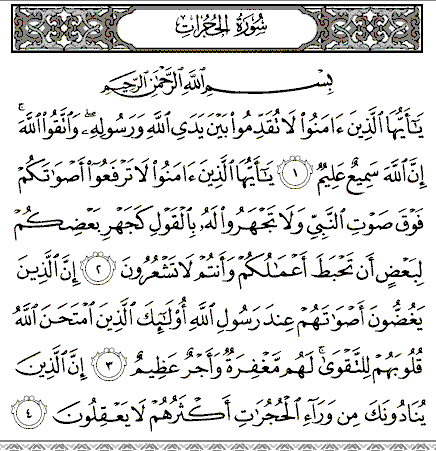 سُورَةُ الحُجُرَاتِ
بِسْمِ اللَّهِ الرَّحْمَٰنِ الرَّحِيمِ
يَـٰٓأَيُّهَا الَّذِينَ ءَامَنُوا۟ لَا تُقَدِّمُوا۟ بَيْنَ يَدَىِ اللَّهِ وَرَسُولِهِۦ ۖ وَاتَّقُوا۟ اللَّهَ ۚ
إِنَّ اللَّهَ سَمِيعٌ عَلِيمٌ ١ يَـٰٓأَيُّهَا الَّذِينَ ءَامَنُوا۟ لَا تَرْفَعُوٓا۟ أَصْوَٰتَكُمْ
فَوْقَ صَوْتِ النَّبِىِّ وَلَا تَجْهَرُوا۟ لَهُۥ بِالْقَوْلِ كَجَهْرِ بَعْضِكُمْ
لِبَعْضٍ أَن تَحْبَطَ أَعْمَـٰلُكُمْ وَأَنتُمْ لَا تَشْعُرُونَ ٢ إِنَّ الَّذِينَ
يَغُضُّونَ أَصْوَٰتَهُمْ عِندَ رَسُولِ اللَّهِ أُو۟لَـٰٓئِكَ الَّذِينَ امْتَحَنَ اللَّهُ
قُلُوبَهُمْ لِلتَّقْوَىٰ ۚ لَهُم مَّغْفِرَةٌ وَأَجْرٌ عَظِيمٌ ٣ إِنَّ الَّذِينَ
يُنَادُونَكَ مِن وَرَآءِ الْحُجُرَٰتِ أَكْثَرُهُمْ لَا يَعْقِلُونَ ٤